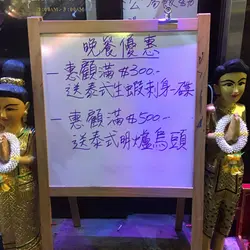 晚餐優惠
一惠顧滿$300-
送泰式生蝦刺身一碟
一惠顧滿$500-
送泰式明爐烏頭